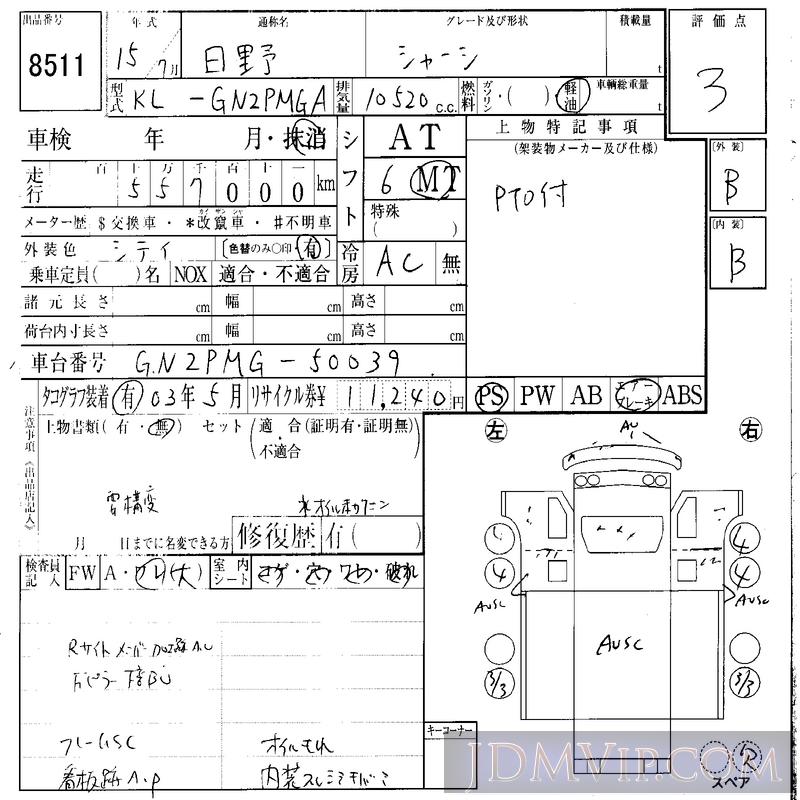 出品番号
8511
年式
15年7月
通称名
日野
グレード及び形状
シャーシ
積載量
t
評価点
3
型式
KL-GN2PMGA
排気量
10520 c.c.
燃料
ガソリン・( ) 軽油
車輌総重量
t
車検 年 月・抹消
シフト
AT
6 MT
特殊
( )
上物特記事項
(架装物メーカー及び仕様)
PTO付
[外装]
B
[内装]
B
走行
百 十 万 千 百 十 一
5 5 7 0 0 0 km
メーター歴 $交換車・*改竄車・#不明車
カイ サン シャ
外装色 シティ [色替のみ○印・有]
冷房
AC 無
乗車定員( )名 NOX 適合・不適合
諸元長さ cm 幅 cm 高さ cm
荷台内寸長さ cm 幅 cm 高さ cm
車台番号 GN2PMG-50039
タコグラフ装着 有 03年5月 リサイクル券¥ 11,240円
PS PW AB エアーブレーキ ABS
注意事項《出品店記入》
上物書類(有・無) セット (適合(証明有・証明無)
・不適合
月 日までに名変できる方
修復歴 有( )
検査員記入
FW A・
(大)
室内シート
コゲ・穴・ ・破れ
左
右
AU
4
4
4
AUSC
AUSC
AUSC
3/3
3/3
フレームSC
オイルもれ
看板跡A.P
キーコーナー
R
スペア
JDMVIP.COM